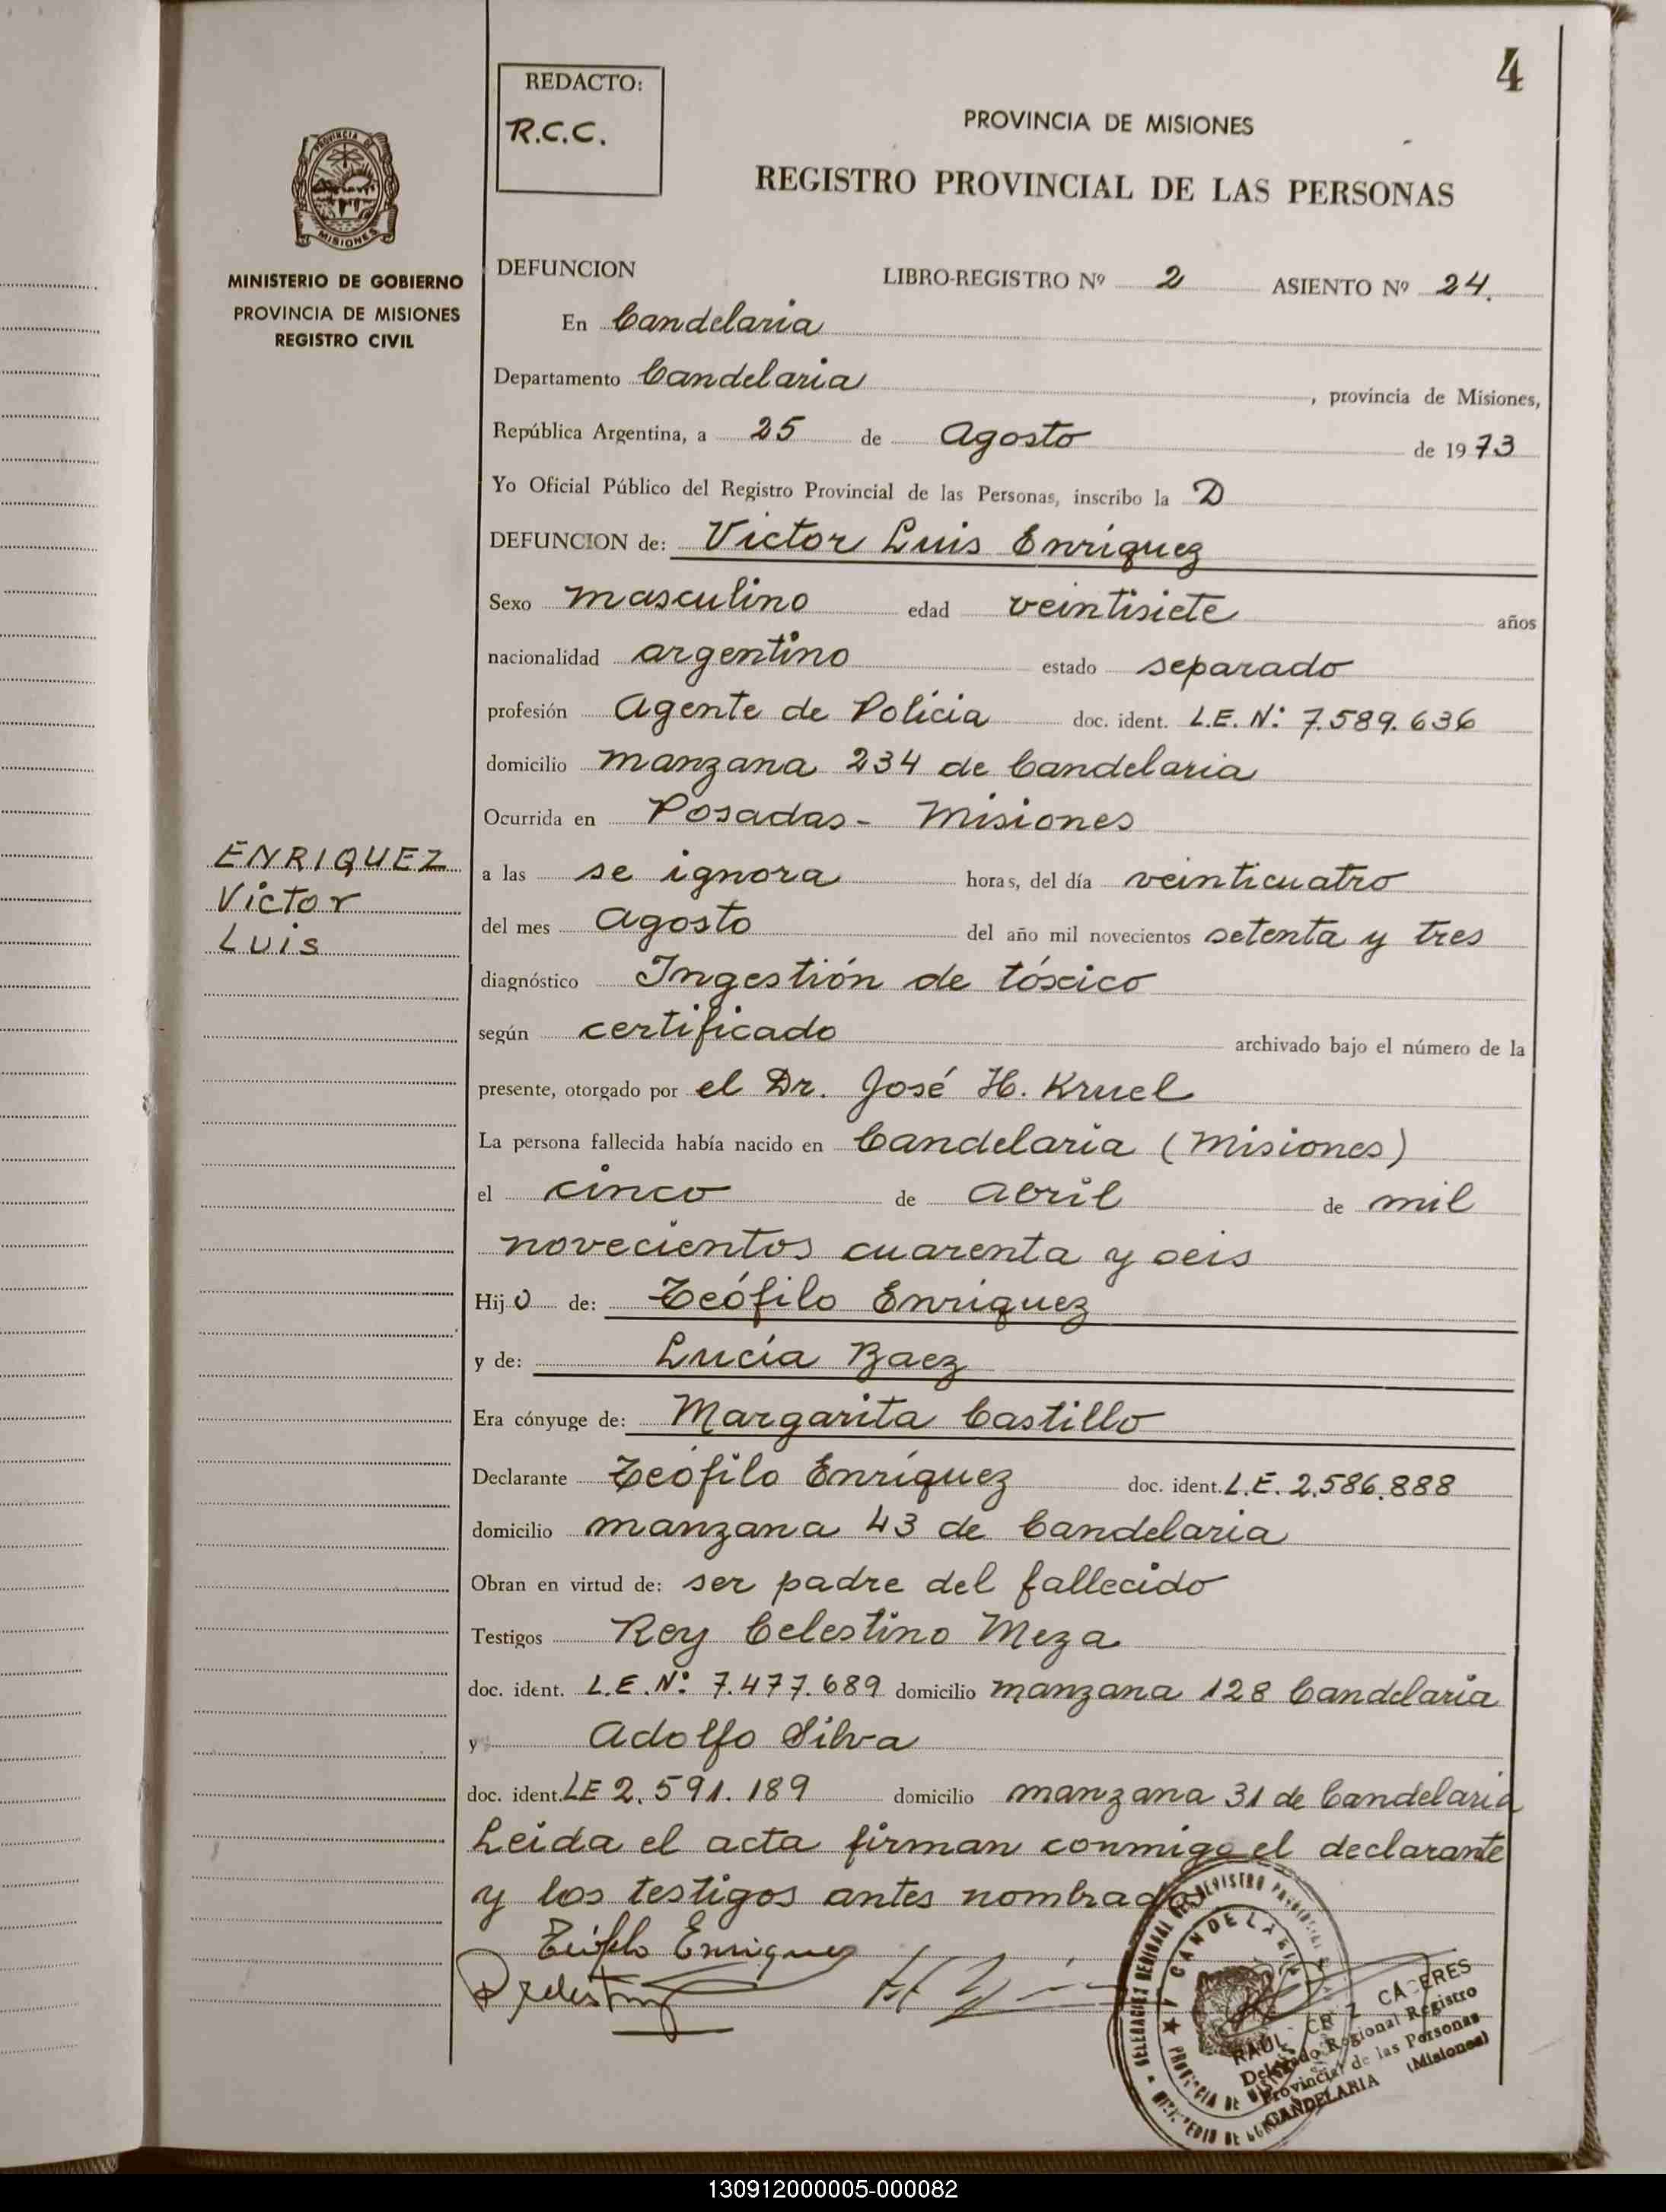 4
REDACTO:
R.C.C.
PROVINCIA DE MISIONES
REGISTRO PROVINCIAL DE LAS PERSONAS
PROVINCIA DE
MISIONES
MINISTERIO DE GOBIERNO
PROVINCIA DE MISIONES
REGISTRO CIVIL
DEFUNCION LIBRO-REGISTRO Nº 2 ASIENTO Nº 24.
En Candelaria
Departamento Candelaria, provincia de Misiones,
República Argentina, a 25 de Agosto de 1973
Yo Oficial Público del Registro Provincial de las Personas, inscribo la D
DEFUNCION de: Victor Luis Enriquez
Sexo masculino edad veintisiete años
nacionalidad argentino estado separado
profesión Agente de Policia doc. ident. L.E. Nº 7.589.636
domicilio manzana 234 de Candelaria
Ocurrida en Posadas - Misiones
ENRIQUEZ
Victor
Luis
a las se ignora horas, del día veinticuatro
del mes Agosto del año mil novecientos setenta y tres
diagnóstico Ingestión de tóxico
según certificado archivado bajo el número de la
presente, otorgado por el Dr. José H. Kruel
La persona fallecida había nacido en Candelaria (Misiones)
el cinco de abril de mil
novecientos cuarenta y seis
Hijo de: Teófilo Enriquez
y de: Lucia Baez
Era cónyuge de: Margarita Castillo
Declarante Teófilo Enriquez doc. ident. L.E. 2.586.888
domicilio manzana 43 de Candelaria
Obran en virtud de: ser padre del fallecido
Testigos Rey Celestino Meza
doc. ident. L.E. Nº 7.477.689 domicilio manzana 128 Candelaria
y Adolfo Silva
doc. ident. LE 2.591.189 domicilio manzana 31 de Candelaria
Leida el acta firman conmigo el declarante
y los testigos antes nombrados
Teófilo Enriquez
CANDELARIA
RAUL CACERES
Delegado Regional Registro
Provincial de las Personas
CANDELARIA (Misiones)
130912000005-000082